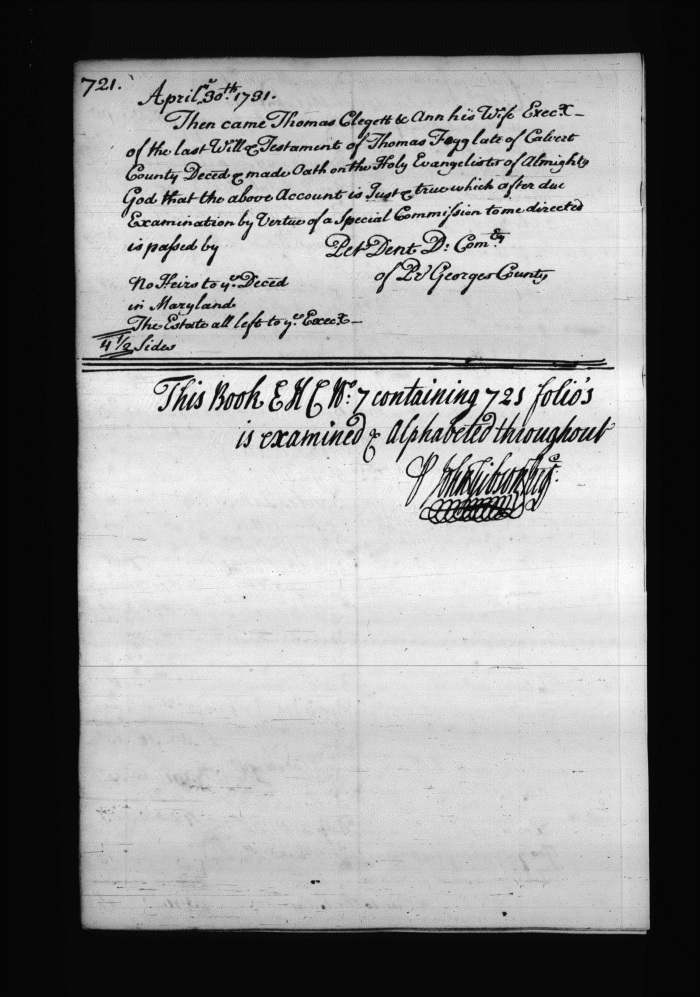 721.
April ye 30th 1731.
Then came Thomas Clegett & Ann his Wife Execx
of the last Will & Testament of Thomas Fogg late of Calvert
County Deced & made Oath on the Holy Evangelists of Almighty
God that the above Account is Just & true which after due
Examination by Vertue of a Special Commission to me directed
is passed by Petr Dent D: Comry
of Pr Georges County
No Heirs to ye Deced
in Maryland
The Estate all left to ye Execx
4 1/2 Sides
This Book No: 7 containing 721 folio's
is examined & Alphabeted throughout
P John Gibson